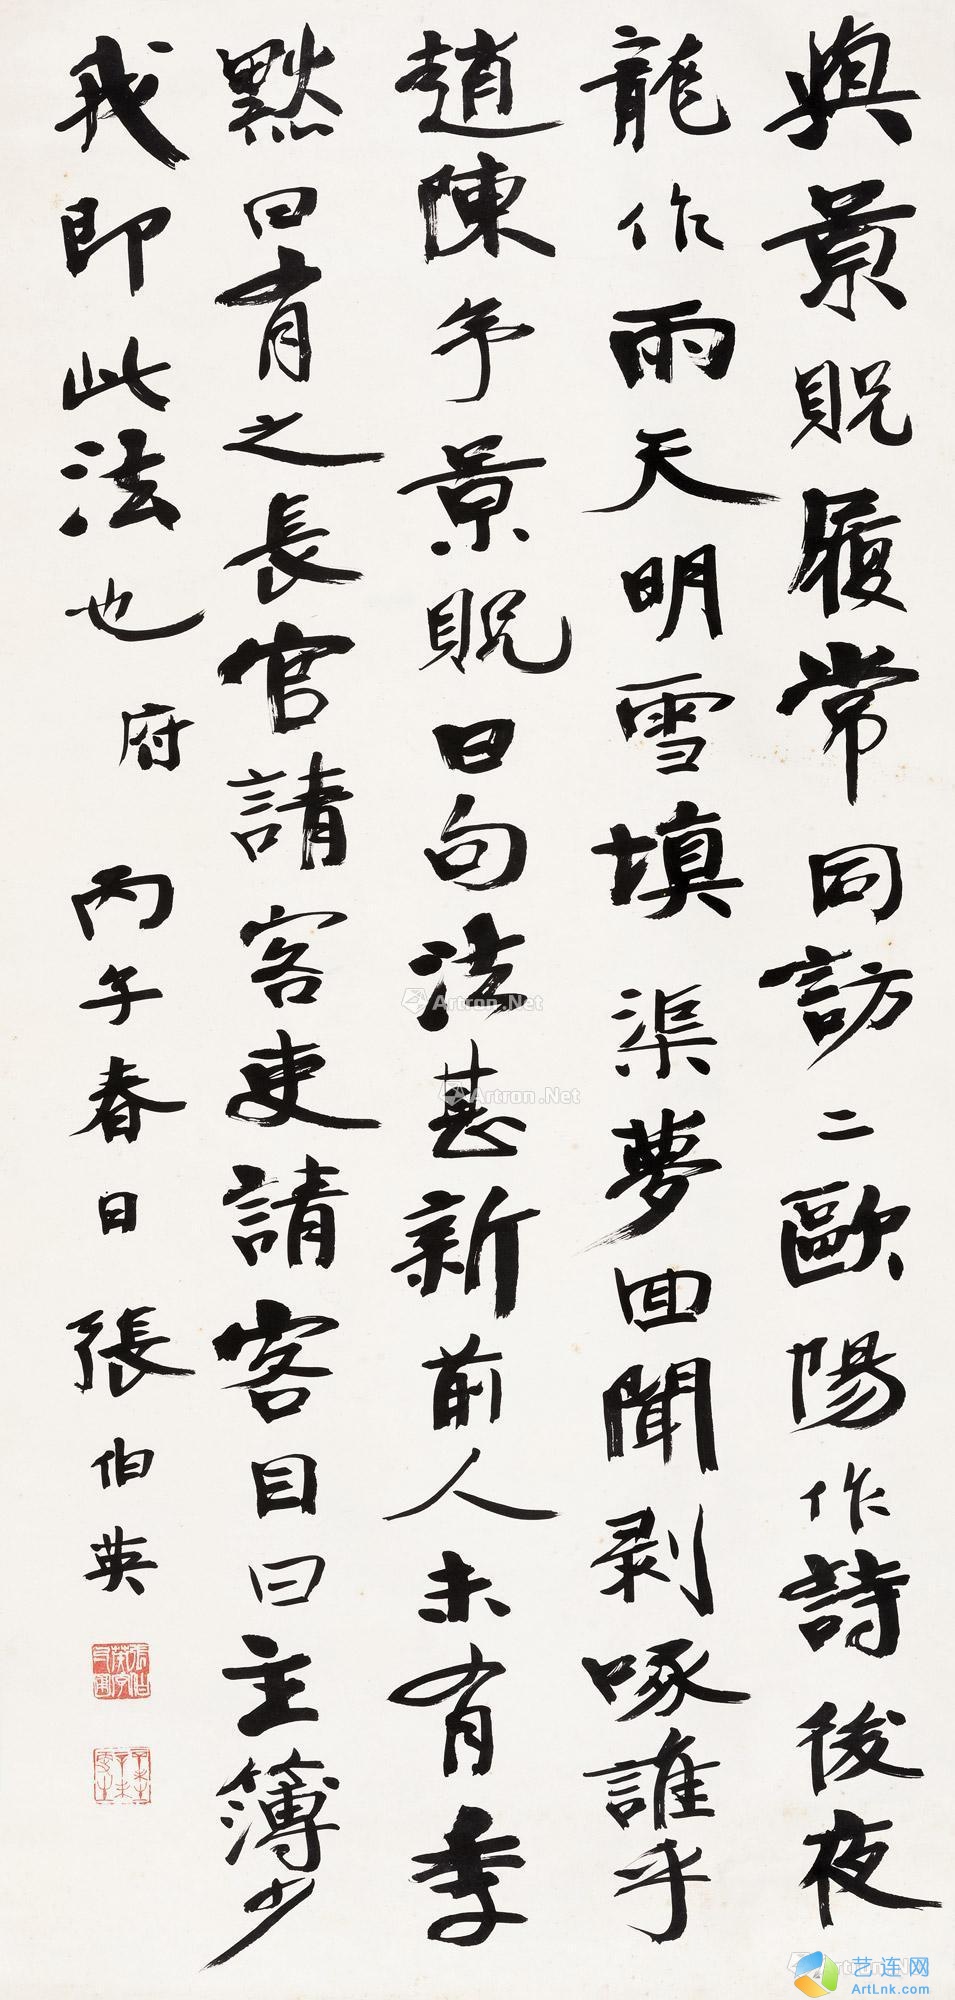 與景貺履常同訪二歐陽作詩後夜
龍作雨天明雪填渠夢回聞剥啄誰乎
趙陳予景貺曰句法甚新前人未有季
默曰有之長官請客吏請客目曰主簿少
我即此法也 府
丙午春日 張伯英
Artron.Net
Artron.Net
艺连网
ArtLnk.com